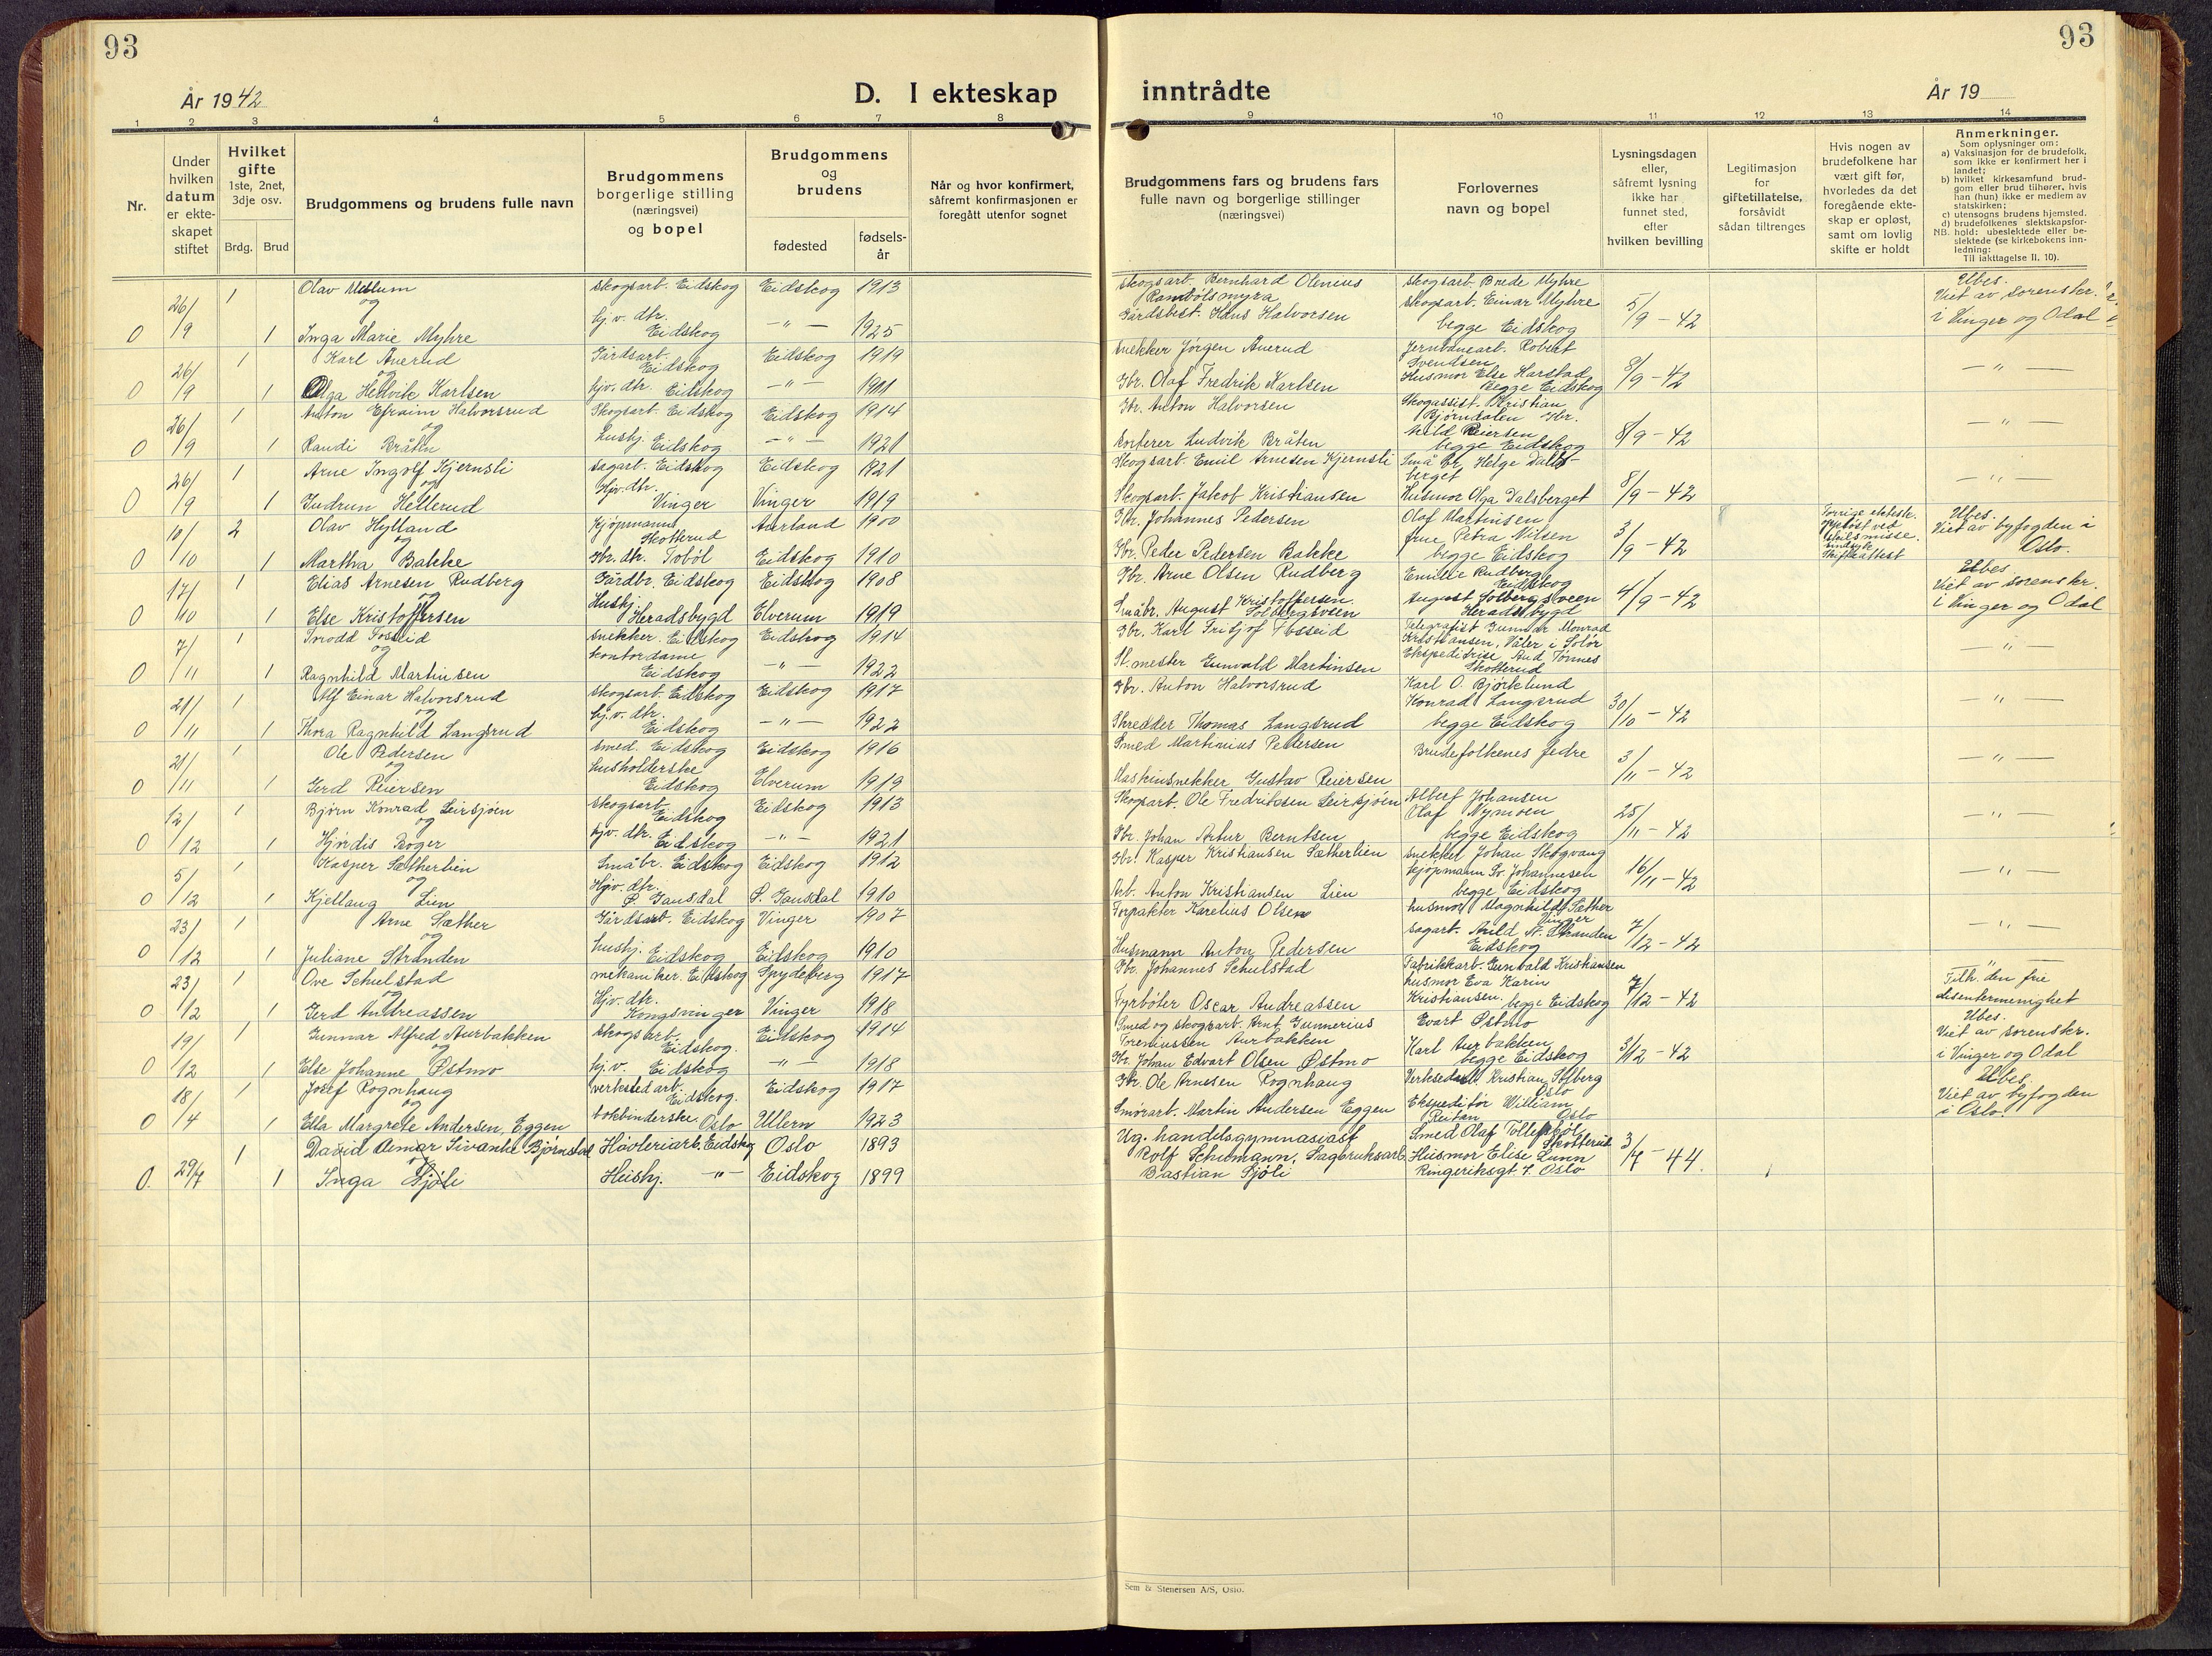 93
93
År 1942
D. I ekteskap
inntrådte
År 19
1 2 3 4 5 6 7 8 9 10 11 12 13 14
Nr.
Under
hvilken
datum
er ekte-
skapet
stiftet
Hvilket
gifte
1ste, 2net,
3dje osv.
Brdg. Brud
Brudgommens og brudens fulle navn
Brudgommens
borgerlige stilling
(næringsvei)
og bopel
Brudgommens
og
brudens
fødested
fødsels-
år
Når og hvor konfirmert,
såfremt konfirmasjonen er
foregått utenfor sognet
Brudgommens fars og brudens fars
fulle navn og borgerlige stillinger
(næringsvei)
Forlovernes
navn og bopel
Lysningsdagen
eller,
såfremt lysning
ikke har
funnet sted,
efter
hvilken bevilling
Legitimasjon
for
giftetillatelse,
forsåvidt
sådan tiltrenges
Hvis nogen av
brudefolkene har
vært gift før,
hvorledes da det
foregående ekte-
skap er opløst,
samt om lovlig
skifte er holdt
Anmerkninger.
Som oplysninger om:
a) Vaksinasjon for de brudefolk,
som ikke er konfirmert her i
landet;
b) hvilket kirkesamfund brud-
gom eller brud tilhører, hvis
han (hun) ikke er medlem av
statskirken;
c) utensogns brudens hjemsted.
d) brudefolkenes slektskapsfor-
NB. hold: ubeslektede eller be-
slektede (se kirkebokens inn-
ledning:
Til iakttagelse II, 10).
26/9 1 Olav skogsart. Eidskog Eidskog 1913
og
0 1 Inga Marie Myhre hj.v. dtr. Eidskog —"— 1925
skogsarb. Bernhard Olenius
Gårdsbest. Hans Halvorsen
skogsarb. Brede Myhre
skogsarb. Einar Myhre
begge Eidskog
5/9 - 42
Ubes.
Viet av sorenskr.
i Vinger og Odal
26/9 1 Karl Auerud Gårdsarb. Eidskog Eidskog 1919
og
0 1 Olga Hellvik Karlsen hjv. dtr. Eidskog —"— 1911
snekker Jørgen Auerud
Gbr. Olaf Fredrik Karlsen
Jernbanearb. Robert
Svendsen
Husmor Else Harstad
Begge Eidskog
8/9 - 42
—"—
26/9 1 Anton Efraim Halvorsrud Skogsarb. Eidskog Eidskog 1914
og
0 1 Randi Bråten hushj. Eidskog —"— 1921
Gbr. Anton Halvorsen
Ludvik Bråten
Skogassist. Kristian
Bjørndalen Gbr.
Reiersen
begge Eidskog
8/9 - 42
—"—
26/9 1 Arne Ingolf Kjernsli sagarb. Eidskog Eidskog 1921
og
0 1 Gudrun Hellerud Hjv. dtr. Vinger Vinger 1919
Skogsarb. Emil Arnesen Kjernsli
Skogsarb. Jakob Kristiansen
Småbr. Helge Dals-
berget
Husmor Olga Dalsberget
8/9 - 42
—"—
10/10 2 Olav Hylland Kjøpmann Skotterud Aurland 1900
og
0 1 Martha Bakke Gbr. dtr. Tobøl Eidskog 1910
Gbr. Johannes Pedersen
Gbr. Peder Pedersen Bakke
Olaf Martinsen
frue Petra Nilsen
begge Eidskog
3/9 - 42
Forrige ektesk.
opløst ved
skilsmisse.
Skifteattest
Ubes.
Viet av byfogden i
Oslo.
17/10 1 Elias Arnesen Rudberg Gårdbr. Eidskog Eidskog 1908
og
0 1 Else Kristoffersen Hushj. Heradsbygd Elverum 1919
Gbr. Arne Olsen Rudberg
Småbr. August Kristoffersen
Solbergsveen
Emilie Rudberg
Eidskog
August Solbergsveen
Heradsbygd
4/9 - 42
Ubes.
Viet av sorenskr.
i Vinger og Odal
7/11 1 Tosseid snekker. Eidskog Eidskog 1914
og
0 1 Ragnhild Martinsen kontordame Eidskog —"— 1922
Gbr. Karl Fritjof Tosseid
St. mester Gunvald Martinsen
Telegrafist Gunnar Monrad
Kristiansen, Våler i Solør
Ekspeditrise Aud Tønnes
Skotterud
—"—
21/11 1 Alf Einar Halvorsrud skogsarb. Eidskog Eidskog 1917
og
0 1 Thora Ragnhild Langsrud hj.v. dtr. Eidskog —"— 1922
Gbr. Anton Halvorsrud
Skredder Thomas Langsrud
Karl O. Bjørklund
Konrad Langsrud
begge Eidskog
30/10 - 42
—"—
21/11 1 Ole Pedersen smed. Eidskog Eidskog 1916
og
0 1 Gerd Reiersen husholderske Eidskog Elverum 1919
Smed Martinius Pedersen
Maskinsnekker Gustav Reiersen
Brudefolkenes fedre
3/11 - 42
—"—
12/12 1 Bjørn Konrad Leirsjøen skogsarb. Eidskog Eidskog 1913
og
0 1 Hjørdis Berger hjv. dtr. Eidskog —"— 1921
Skogsarb. Ole Fredriksen Leirsjøen
Gbr. Johan Artur Berntsen
Albert Johansen
Olaf Nymoen
begge Eidskog
25/11 - 42
—"—
5/12 1 Kasper Sætherlien Småbr. Eidskog Eidskog 1912
og
0 1 Kjellaug Lien Hjv. dtr. Ø. Gausdal Ø. Gausdal 1910
Gbr. Kasper Kristiansen Sætherlien
Arb. Anton Kristiansen Lien
snekker Johan Skogvang
Kjøpmann Sv. Johannesen
begge Eidskog
16/11 - 42
—"—
23/12 1 Arne Sæther Gårdsarb. Eidskog Vinger 1907
og
0 1 Juliane Stranden hushj. Eidskog Eidskog 1910
Forpakter Karelius Olsen
Husmann Anton Pedersen
husmor Magnhild Sæther
Vinger
sagarb. Arild Stranden
Eidskog
7/12 - 42
—"—
23/12 1 Ove Schulstad mekaniker. Eidskog Spydeberg 1917
og
0 1 Gerd Andreassen Hjv. dtr. Kongsvinger Vinger 1918
Gbr. Johannes Schulstad
Fyrbøter Oscar Andreassen
Fabrikkarb. Gunvald Kristiansen
husmor Eva Karin
Kristiansen. begge Eidskog
7/12 - 42
—"—
Tilh. den frie
disentermenighet
19/12 1 Gunnar Alfred Aurbakken skogsarb. Eidskog. Eidskog 1914
og
0 1 Else Johanne Østmo hj.v. Eidskog —"— 1918
Smed og skogsarb. Arnt Gunnerius
Toreniussen Aurbakken
Gbr. Johan Edvart Olsen Østmo
Evart Østmo
Karl Aurbakken
begge Eidskog
3/12 - 42
Ubes.
Viet av sorenskr.
i Vinger og Odal
18/4 1 Josef Rognhaug verkstedarb. Eidskog. Eidskog 1917
og
0 1 Ella Margrete Andersen, Eggen bokbinderske. Oslo Ullern 1923
Gbr. Ole Arnesen Rognhaug
Smørarb. Martin Andersen Eggen
Verkstedarb. Kristian Solberg
Oslo
Ekspeditør William
Reitan Oslo
Ubes.
Viet av byfogden
i Oslo.
29/7 1 David Bjørnstad Høvleriarb. Eidskog Oslo 1893
og
0. 1 Inga Sjøli Hushj. —"— Eidskog 1899
Ug. handelsgymnasiast
Rolf Schumann, Sagbruksarb.
Bastian Sjøli
Smed Olaf Tollefsbøl,
Skotterud
Husmor Elise Lunn
Ringeriksgt 7. Oslo
3/7 - 44.
Sem & Stenersen A/S, Oslo.